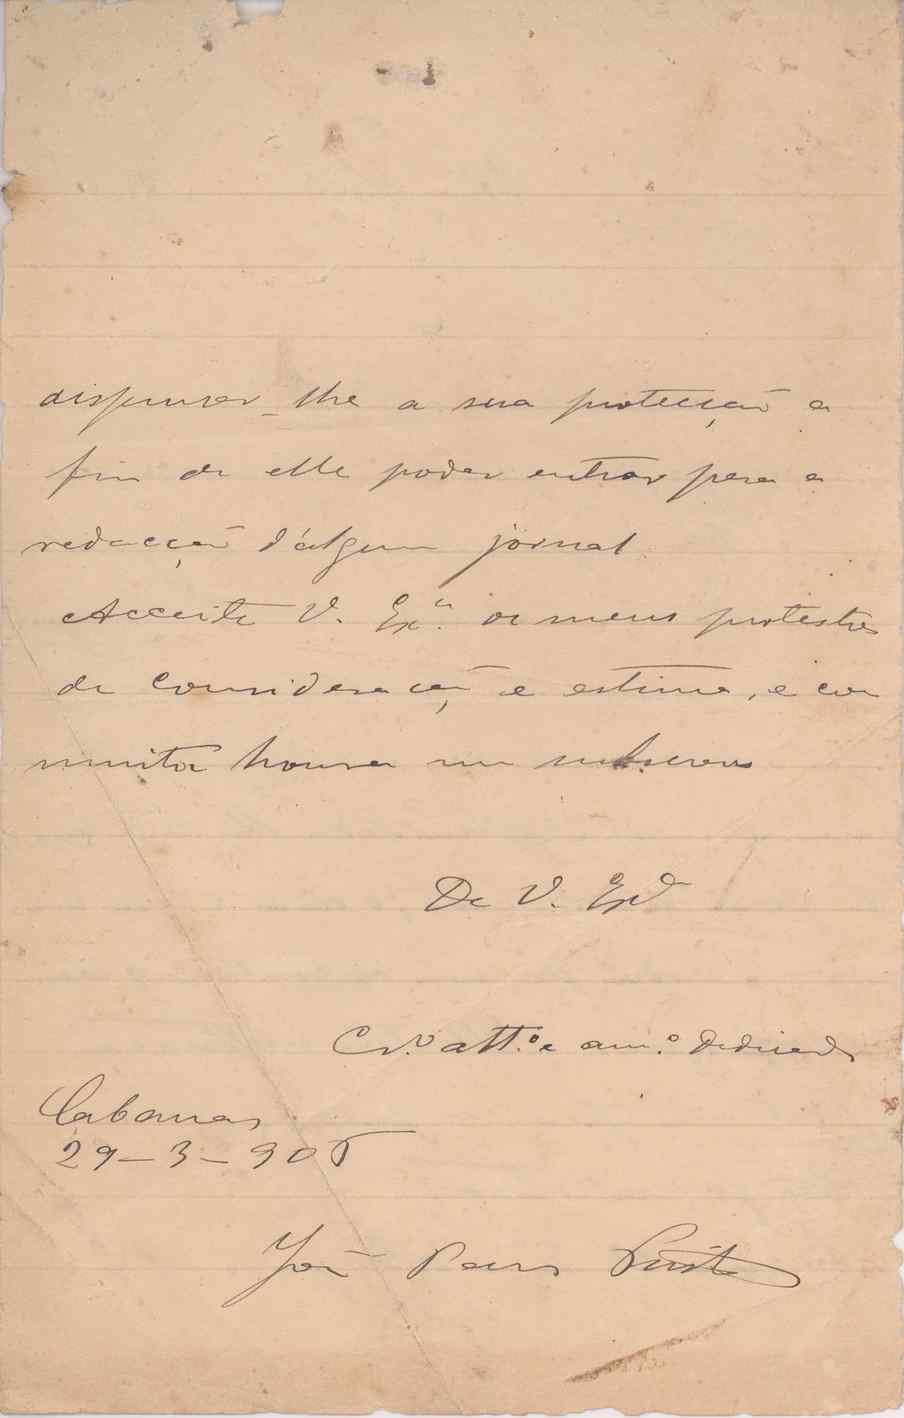 dispensar-lhe a sua protecção a
fim de elle poder entrar para a
redacção d'algum jornal.
Acceite V. Exª. os meus protestos
de consideração e estima, e com
muita honra me subscrevo
De V. Exª
Crº. attº. e amº. dedicado
Cabanas
29-3-905
João Paes